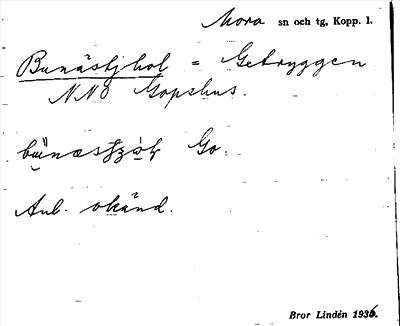 Mora sn och tg, Kopp. l.
Bunästjhol = Getryggen
NNO Gopshus.
Go.
Anl. okänd.
Bror Lindén 1936.